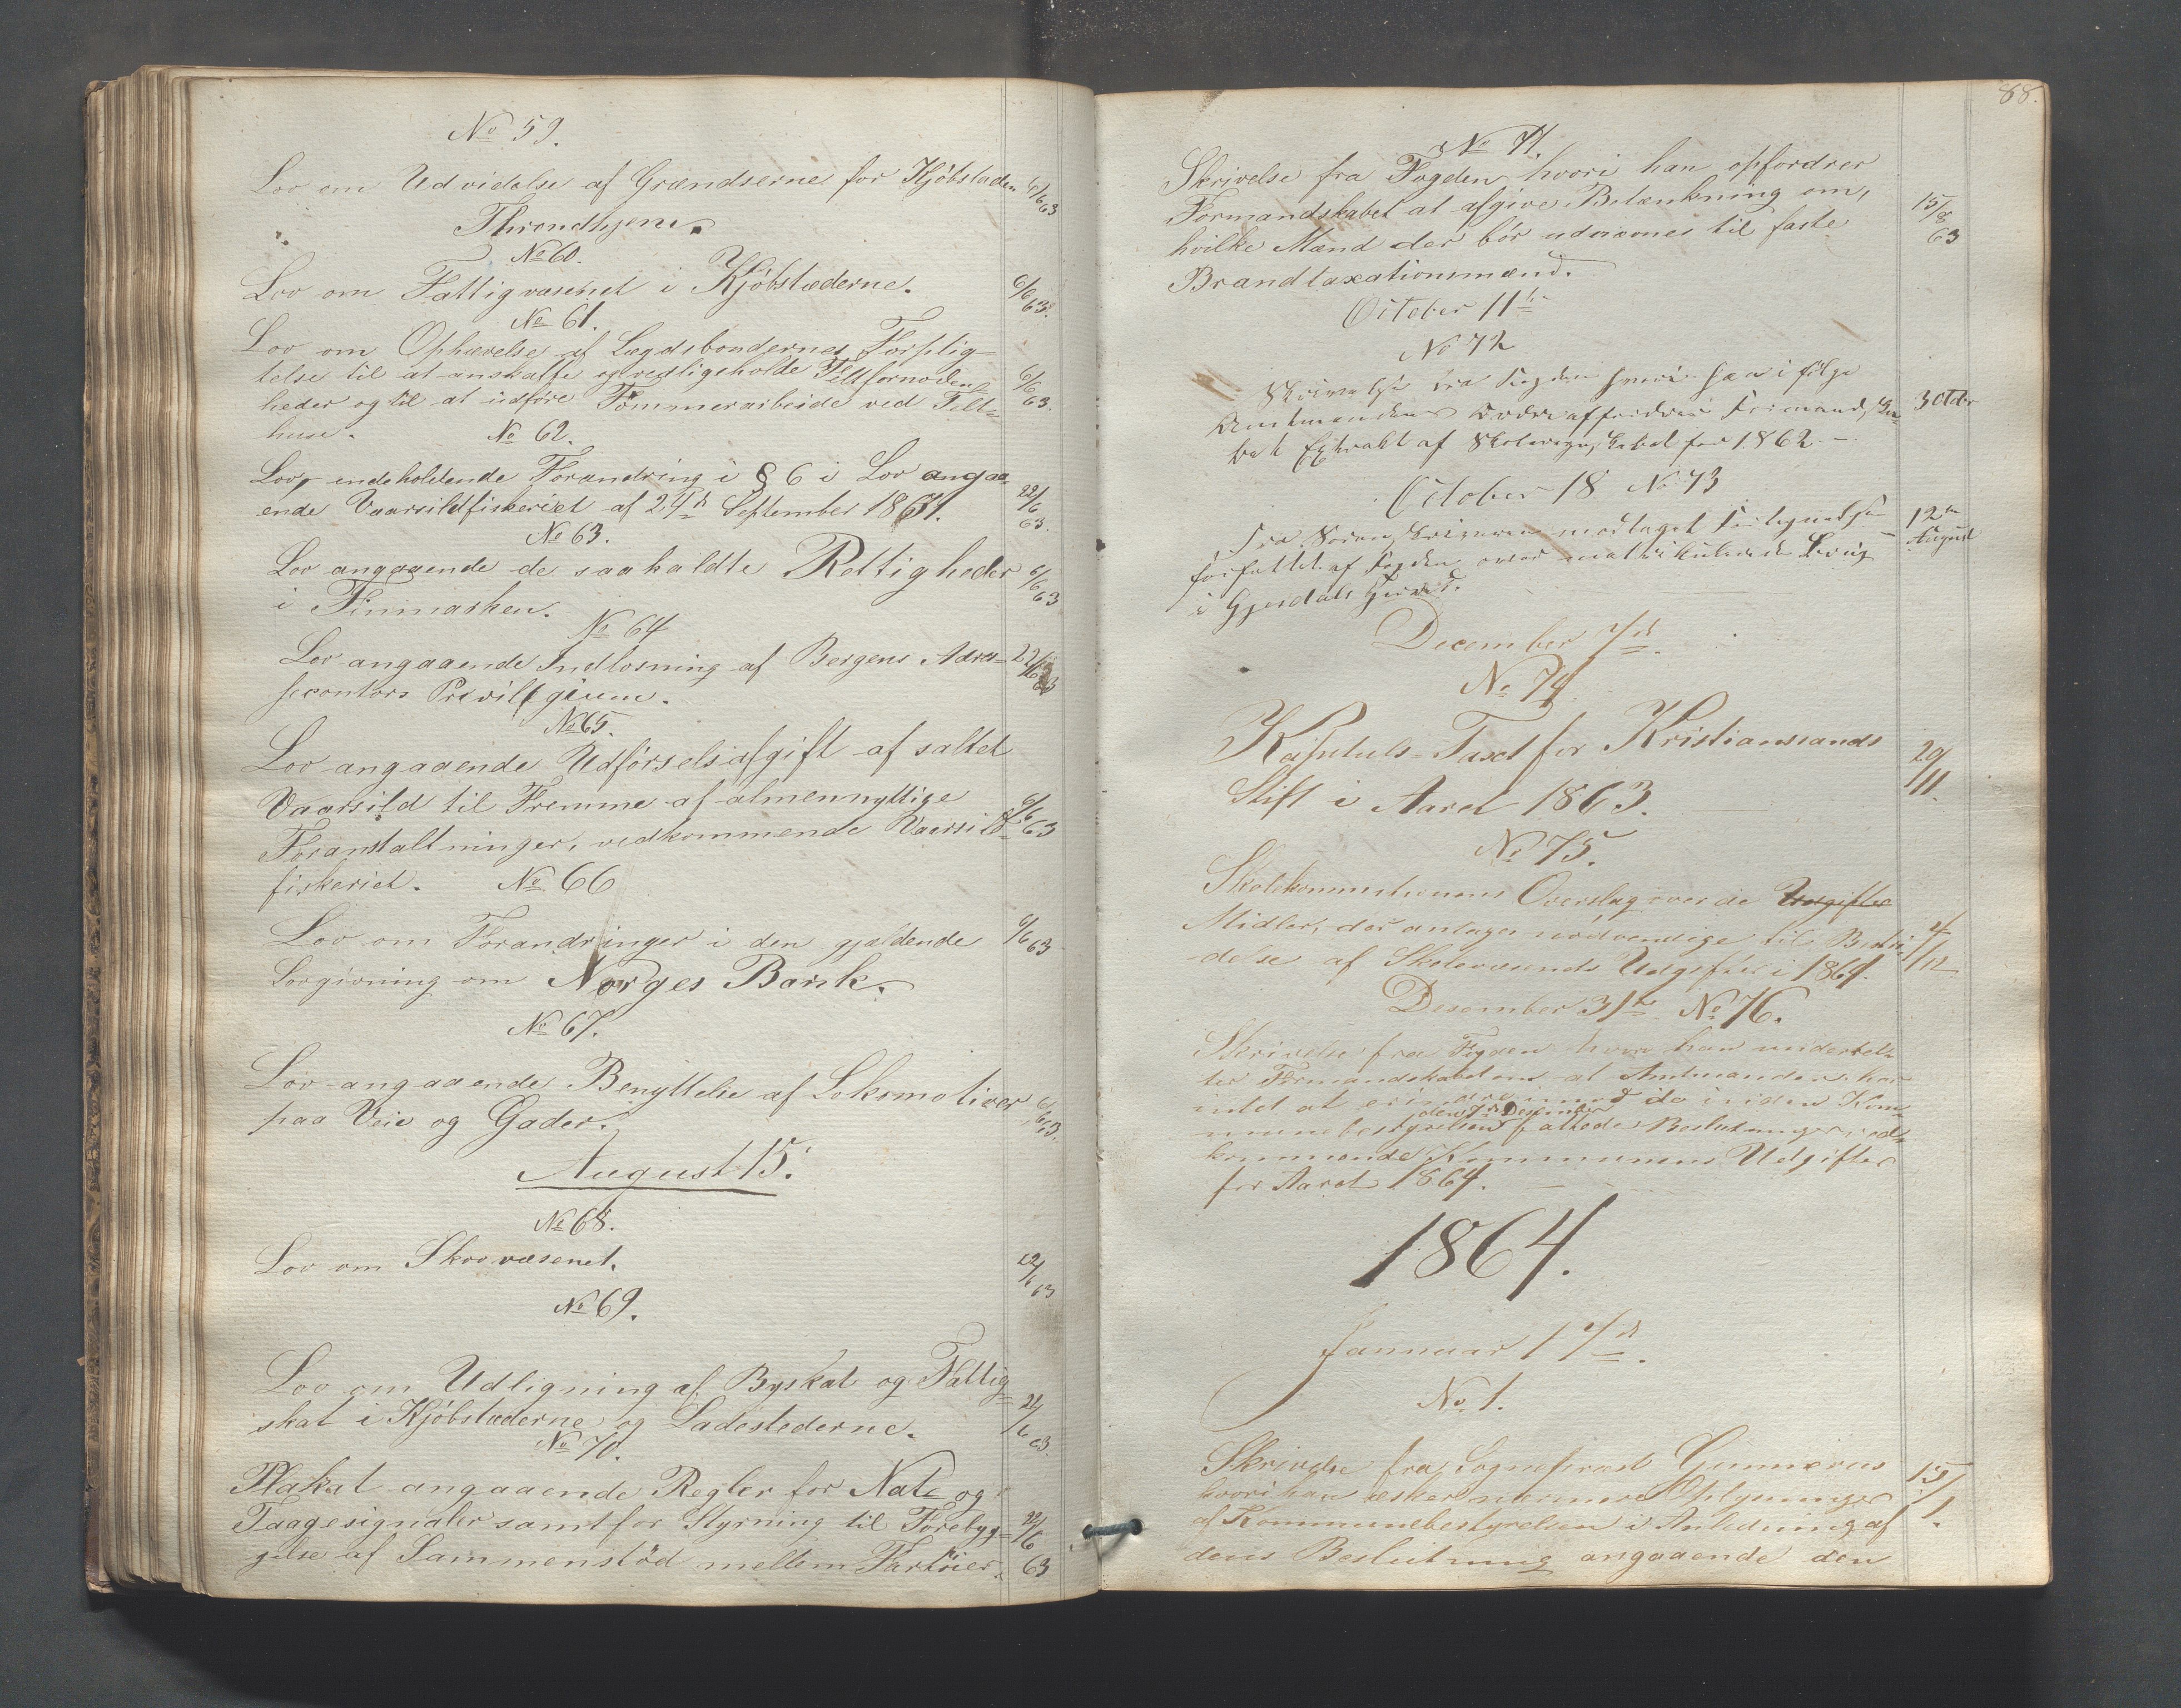 No 59.
Lov om Udvidelse af Grændserne for Kjöbstaden 6/6 63
Throndhjem.
No 60.
Lov om Fattigvæsenet i Kjöbstæderne. 6/6 63.
No 61.
Lov om Ophævelse af Lægdsbøndernes Forplig=
telse til at anskaffe og vedligeholde Teltfornöden= 6/6 63.
heder og til at udföre Tømmerarbeide ved Telt=
huse. No 62.
Lov, indeholdende Forandring i § 6 i Lov angaa=
ende Vaarsildfiskeriet af 24de September 1851. 22/6 63.
No 63.
Lov angaaende de saakaldte Rettigheder 6/6 63
i Finmarken.
No 64
Lov angaaende Indlösning af Bergens Adres= 22/6 63
secontors Privilegium.
No 65.
Lov angaaende Udförselsafgift af saltet
Vaarsild til Fremme af almennyttige
Foranstaltninger, vedkommende Vaarsild= 6/6 63
fiskeriet. No 66
Lov om Forandringer i den gjældende 6/6 63
Lovgivning om Norges Bank.
No 67.
Lov angaaende Benyttelse af Lokomotiver
paa Veie og Gader. 6/6 63.
August 15.
No 68.
Lov om Skovvæsenet. 22/6 63
No 69.
Lov om Udligning af Byskat og Fattig=
skat i Kjöbstæderne og Ladestederne. 22/6 63.
No 70.
Plakat angaaende Regler for Nat= og
Taagesignaler samt for Styrning til Forebyg= 22/6 63
gelse af Sammenstöd mellem Fartöier.
88.
No 71.
Skrivelse fra Fogden, hvori han opfordrer
Formandskabet at afgive Betænkning om, 15/8 63
hvilke Mænd der bör udnævnes til faste
Brandtaxationsmænd.
October 11te
No 72
Skrivelse fra Fogden hvori han i fölge
Amtmandens Ordre affordrer Formandska= 3 Octbr
bet Extrakt af Skoleregnskabet for 1862. –
October 18 No 73
Fra Sorenskriveren modtaget Fortegnelse 12te August
forfattet af Fogden over matrikulerede Brug
i Gjesdals Herred.
December 7de
No 74
Kapitels-Taxt for Kristianssands 29/11.
Stift i Aaret 1863.
No 75.
Skolekommisionens Overslag over de Udgifter
Midler, der antages nödvendige til Bestri= 4/12
delse af Skolevæsenets Udgifter i 1864.
Desember 31te No 76.
Skrivelse fra Fogden hvori han underret=
ter Formandskabet om at Amtmanden har
intet at erindre imod de i den Kom=
den 7de Desember
munebestyrelsen fattede Beslutninger ved=
kommende Kommunens Udgifter
for Aaret 1864. –
1864.
Januar 17de.
No 1.
Skrivelse fra Sogneprest Gunnerus 15/1.
hvori han æsker nærmere Oplysninger
af Kommunebestyrelsen i Anledning af
dens Beslutning angaaende den